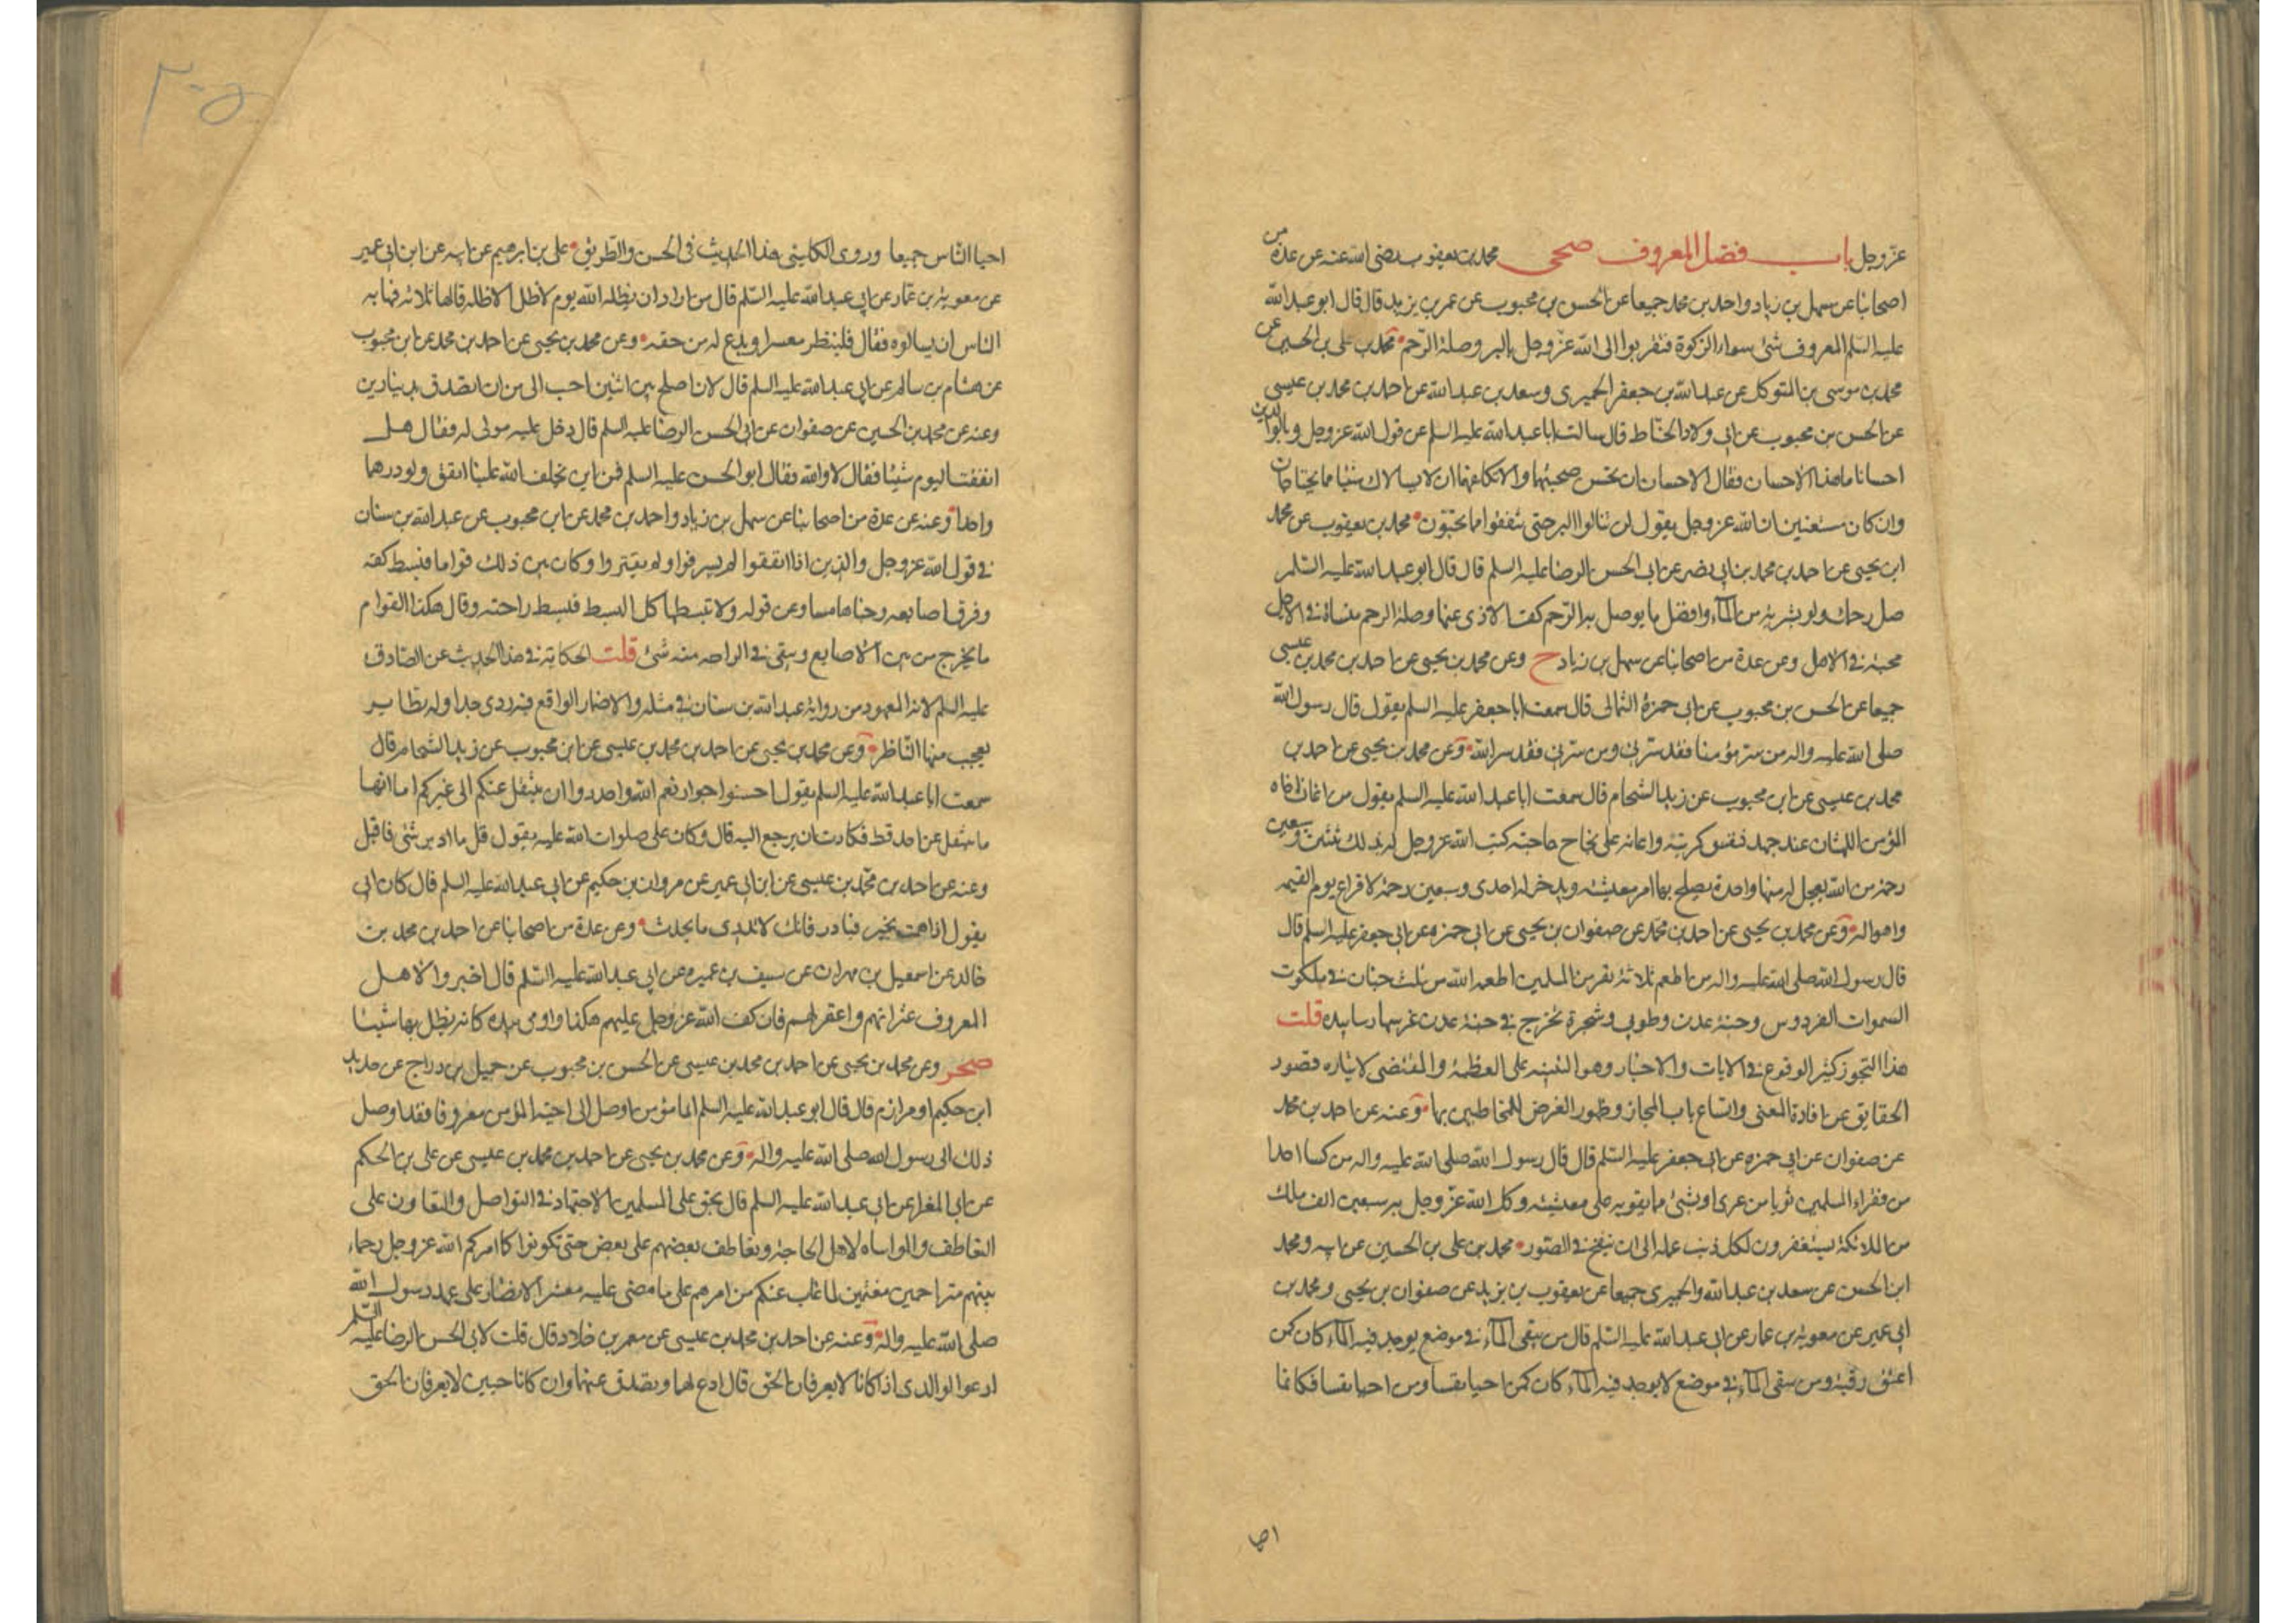 عز وجل باب فضل المعروف صحى محمد بن يعقوب رضى الله عنه عن عدة من
اصحابنا عن سهل بن زياد واحمد بن محمد جميعا عن الحسن بن محبوب عن عمر بن يزيد قال قال ابو عبد الله
عليه السلم المعروف شئ سواء الزكوة فتقربوا الى الله عز وجل بالبر وصلة الرحم محمد بن على بن الحسين عن
محمد بن موسى بن المتوكل عن عبد الله بن جعفر الحميرى وسعد بن عبد الله عن احمد بن محمد بن عيسى
عن الحسن بن محبوب عن ابى ولاد الحناط قال سالت ابا عبد الله عليه السلم عن قول الله عز وجل وبالوالدين
احسانا ما هذا الاحسان فقال الاحسان ان تحسن صحبتهما ولا تكلفهما ان لا يسالاك شيئا مما يحتاجان
وان كان مستغنين ان الله عز وجل يقول لن تنالوا البر حتى تنفقوا مما تحبون محمد بن يعقوب عن محمد
ابن يحيى عن احمد بن محمد بن ابى نصر عن ابى الحسن الرضا عليه السلم قال قال ابو عبد الله عليه السلم
صل رحمك ولو بشربة من الماء وافضل ما يوصل به الرحم كف الاذى عنها وصلة الرحم منساة فى الاجل
محبة فى الاهل وعن عدة من اصحابنا عن سهل بن زياد ح وعن محمد بن يحيى عن احمد بن محمد بن عيسى
جميعا عن الحسن بن محبوب عن ابى حمزة الثمالى قال سمعت ابا جعفر عليه السلم يقول قال رسول الله
صلى الله عليه واله من سر مؤمنا فقد سرنى ومن سرنى فقد سر الله وعن محمد بن يحيى عن احمد بن
محمد بن عيسى عن ابن محبوب عن زيد الشحام قال سمعت ابا عبد الله عليه السلم يقول من اغاث اخاه
المؤمن اللهثان عند جهده فنفس كربته واعانه على نجاح حاجته كتب الله عز وجل له بذلك ثنتين وسبعين
رحمة من الله يعجل له منها واحدة يصلح بها امر معيشته ويدخر له احدى وسبعين رحمة لافزاع يوم القيمة
واهواله وعن محمد بن يحيى عن احمد بن محمد عن صفوان بن يحيى عن ابى حمزه عن ابى جعفر عليه السلم قال
قال رسول الله صلى الله عليه واله من اطعم ثلاثة نفر من المسلمين اطعمه الله من ثلث جنان فى ملكوت
السموات الفردوس وجنة عدن وطوبى وشجرة تخرج فى جنة عدن غرسها ربنا بيده قلت
هذا التجوز كثير الوقوع فى الايات والاخبار وهو التنبيه على العظمة والمقتضى لايثاره قصور
الحقايق عن افادة المعنى واتساع باب المجاز وظهور الغرض للمخاطبين بها وعنه عن احمد بن محمد
عن صفوان عن ابى حمزه عن ابى جعفر عليه السلم قال قال رسول الله صلى الله عليه واله من كسا احدا
من فقراء المسلمين ثوبا من عرى او بشئ مما يقويه على معيشته وكل الله عز وجل به سبعين الف ملك
من الملائكة يستغفرون لكل ذنب عمله الى ان ينفخ فى الصور محمد بن على بن الحسين عن ابيه ومحمد
ابن الحسن عن سعد بن عبد الله والحميرى جميعا عن يعقوب بن يزيد عن صفوان بن يحيى ومحمد بن
ابى عمير عن معوية بن عمار عن ابى عبد الله عليه السلم قال من سقى الماء فى موضع يوجد فيه الماء كان كمن
اعتق رقبة ومن سقى الماء فى موضع لا يوجد فيه الماء كان كمن احيا نفسا ومن احيا نفسا فكانما
احيا
احيا الناس جميعا وروى الكلينى هذا الحديث فى الحسن والطريق على بن ابرهيم عن ابيه عن ابن ابى عمير
عن معوية بن عمار عن ابى عبد الله عليه السلم قال من اراد ان يظله الله يوم لا ظل الا ظله قالها ثلاثا فهابه
الناس ان يسالوه فقال فلينظر معسرا او يدع له من حقه وعن محمد بن يحيى عن احمد بن محمد عن ابن محبوب
عن هشام بن سالم عن ابى عبد الله عليه السلم قال لان اصلح بين اثنين احب الى من ان اتصدق بدينارين
وعنه عن محمد بن الحسين عن صفوان عن ابى الحسن الرضا عليه السلم قال دخل عليه مولى له فقال هل
انفقت اليوم شيئا فقال لا والله فقال ابو الحسن عليه السلم فمن اين يخلف الله علينا انفق ولو درهما
واحدا وعنه عن عدة من اصحابنا عن سهل بن زياد واحمد بن محمد عن ابن محبوب عن عبد الله بن سنان
فى قول الله عز وجل والذين اذا انفقوا لم يسرفوا ولم يقتروا وكان بين ذلك قواما فبسط كفه
وفرق اصابعه وحناها مسا وعن قوله ولا تبسطها كل البسط فبسط راحته وقال هكذا القوام
ما يخرج من بين الاصابع ويبقى فى الراحه منه شئ قلت الحكاية فى هذا الحديث عن الصادق
عليه السلم لانه المعهود من رواية عبد الله بن سنان فى مثله والاضمار الواقع فيه ردى جدا وله نظاير
يعجب منها الناظر وعن محمد بن يحيى عن احمد بن محمد بن عيسى عن ابن محبوب عن زيد الشحام قال
سمعت ابا عبد الله عليه السلم يقول احسنوا جوار نعم الله واحذروا ان ينتقل عنكم الى غيركم اما انها
ما تنتقل عن احد قط فكادت ان يرجع اليه قال وكان على صلوات الله عليه يقول قل ما ادبر شئ فاقبل
وعنه عن احمد بن محمد بن عيسى عن ابن ابى عمير عن مروان بن حكيم عن ابى عبد الله عليه السلم قال كان ابى
يقول اذا هممت بخير فبادر فانك لا تدرى ما يحدث وعن عدة من اصحابنا عن احمد بن محمد بن
خالد عن اسمعيل بن مهران عن سيف بن عميره عن ابى عبد الله عليه السلم قال اخبروا لاهل
المعروف عثراتهم واغفر لهم فان كف الله عز وجل عليهم هكذا واومى بيده كانه يظل بها شيئا
صحر وعن محمد بن يحيى عن احمد بن محمد بن عيسى عن الحسن بن محبوب عن جميل بن دراج عن حديد
ابن حكيم او مرازم قال قال ابو عبد الله عليه السلم ايما مؤمن اوصل الى اخيه المؤمن معروفا فقد اوصل
ذلك الى رسول الله صلى الله عليه واله وعن محمد بن يحيى عن احمد بن محمد بن عيسى عن على بن الحكم
عن ابى المغرا عن ابى عبد الله عليه السلم قال يحق على المسلمين الاجتهاد فى التواصل والتعاون على
التعاطف والمواساه لاهل الحاجة وتعاطف بعضهم على بعض حتى تكونوا كما امركم الله عز وجل رحماء
بينهم متراحمين مغتمين لما غاب عنكم من امرهم على ما مضى عليه معشر الانصار على عهد رسول الله
صلى الله عليه واله وعنه عن احمد بن محمد بن عيسى عن معمر بن خلاد قال قلت لابى الحسن الرضا عليه السلم
ادعوا لوالدى اذا كانا لا يعرفان الحق قال ادع لهما وتصدق عنهما وان كانا حيين لا يعرفان الحق